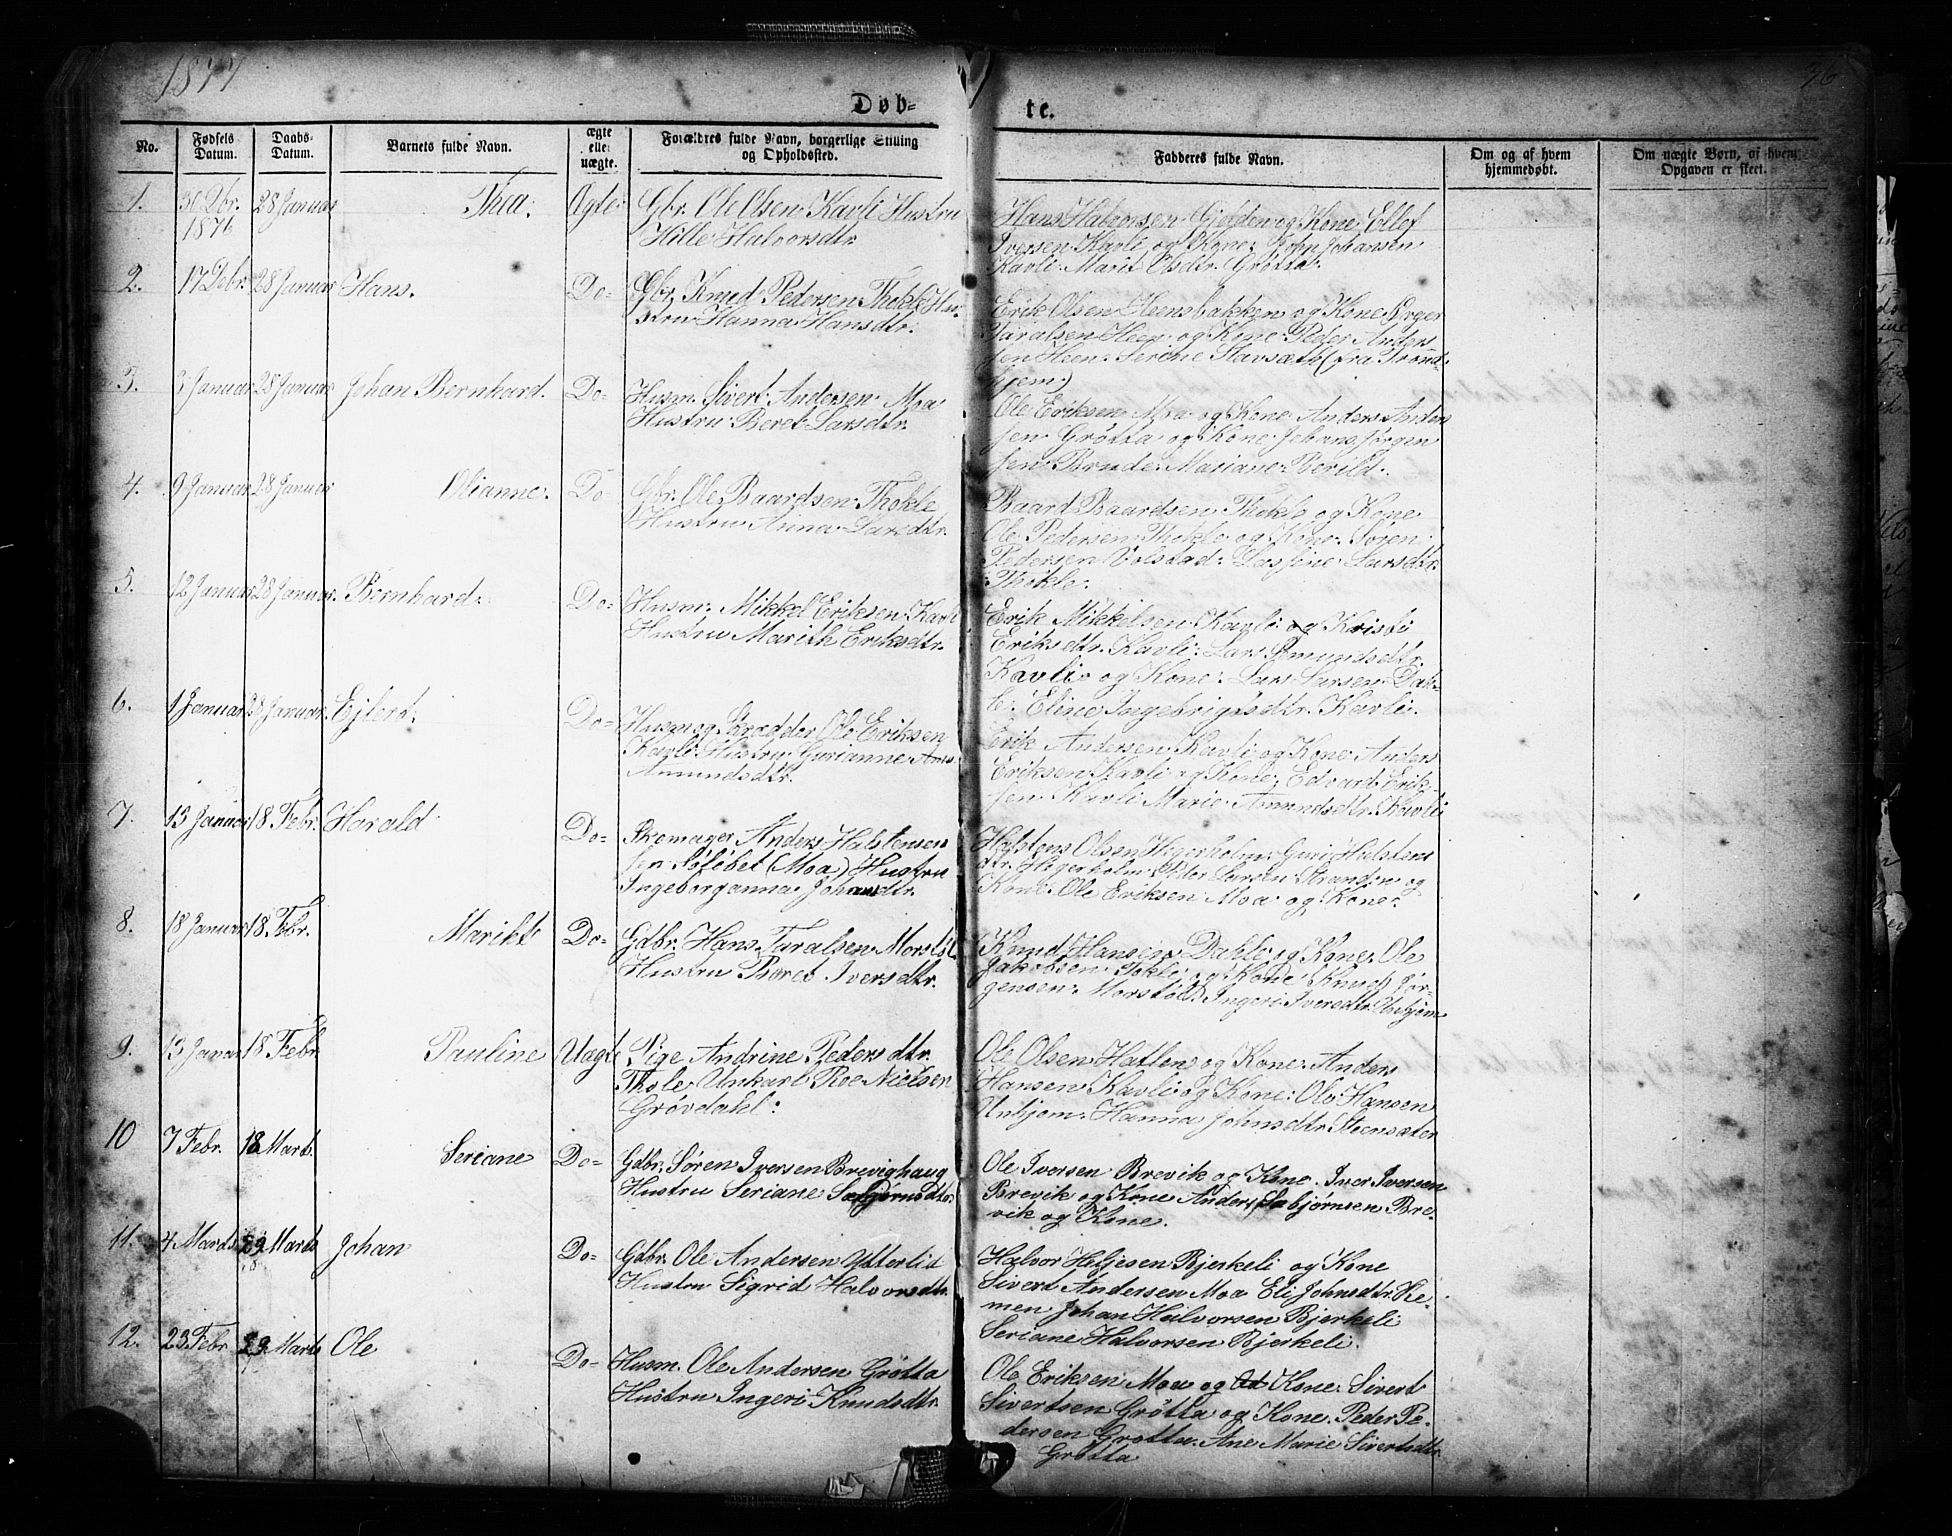 1877
76
Døb-
te.
No.
Fødsels Datum.
Daabs-Datum.
Barnets fulde Navn.
ægte elle uægte.
Forældres fulde Navn, borgerlige Stilling og Opholdssted.
Fadderes fulde Navn.
Om og af hvem hjemmedøbt.
Om uægte Børn, af hvem Opgaven er skeet.
1. 30 Dbr. 1876 28 Januar Thea. Ægte
Gbr. Ole Olsen Kavli Hustru
Hille Halvorsdtr.
Hans Halvorsen og Kone Ellef
Iversen Kavli og Kone: John Johansen
Kavli Marit Olsdtr. Grøtta.
2. 17 Debr. 28 Januar Hans. Do-
Gbr. Knud Pedersen Thokle Hu-
stru Hanna Hansdtr.
Erik Olsen Heensbakken og Kone
Taralsen Heen og Kone Peder Anders
sen Heen: Serine (fra Trond-
hjem)
3. Januar 28 Januar Johan Bernhard. Do-
Husm. Sivert Andersen Moa
Hustru Beret Larsdtr.
Ole Eriksen Moa og Kone Anders Ander
sen Grøtta og Kone Johans Jørgen
sen Brude: Mariane
4. 9 Januar 28 Januar Olianne. Do
Gbr. Ole Baardsen Thokle
Hustru Anna Larsdtr.
Baard Baardsen Thokle og Kone
Ole Pedersen Thokle og Kone: Søren
Pedersen Volstad: Larsdtr.
Thokle.
5. 12 Januar 28 Januar. Bernhard. Do-
Husm. Mikkel Eriksen Kavli
Hustru Marith Eriksdtr.
Erik Mikkelsen Kavli og Kristi
Eriksdtr. Kavli: Lars Amundsdtr.
Kavli og Kone: Lars Larsen Dah-
le: Eline Ingebrigtsdtr. Kavli.
6. 1 Januar 28 Januar. Ejlert. Do-
Husm og Skrædder Ole Eriksen
Kavli Hustru Gurianne
Amundsdtr.
Erik Andersen Kavli og Kone Anders
Eriksen Kavli og Kone: Edvard Erik-
sen Kavli Marie Amundsdtr. Kavli
7. 13 Januar 18 Febr. Harald Do-
Skomager Anders Halstensen
(Moa) Hustru
Ingeborganna Johansdtr.
Halstens Olsen Guri Halstens
dtr. Larsen Stranden og
Kone. Ole Eriksen Moa og Kone.
8. 18 Januar 18. Febr. Marikt Do-
Gdbr. Hans Taralsen Morstøl
Hustru Beret Iversdtr.
Knud Hansen Dahle og Kone Ole
Jakobsen Tokle og Kone Knud Jør-
gensen Morstøl Ingeri Iversdtr. Unhjem
9. 13 Januar 18 Febr. Pauline Uægt
Pige Andrine Pedersdtr.
Thole Unkarl Roe Nielsen
Grøvdahl:
Ole Olsen Hatlen og Kone: Anders
Hansen Kavli og Kone: Ole Hansen
Unhjem: Hanna Johnsdtr. Steensæter
10 7 Febr. 18 Marts. Seriane Do-
Gdbr. Søren Iversen Brevighaug
Hustru Seriane Sæbjørnsdtr.
Ole Iversen Brevik og Kone. Iver Iversen
Brevik og Kone Anders Sæbjørnsen Bre-
vik og Kone.
11. 4 Marts 29 Marts Johan Do-
Gdbr. Ole Andersen Ytterlid
Hustru Sigrid Halvorsdtr.
Halvor Heljesen Bjerkeli og Kone
Sivert Andersen Moa Eli Johnsdtr. Re-
men Johan Halvorsen Bjerkeli
Seriane Halvorsen Bjerkeli.
12. 23 Febr 29 Marts Ole Do-
Husm. Ole Andersen Grøtta
Hustru Ingeri Knudsdtr.
Ole Eriksen Moa og Kone. Sivert
Sivertsen Grøtta og Kone. Peder Pe-
dersen Grøtta. Ane Marie Sivertsdtr.
Grøtta